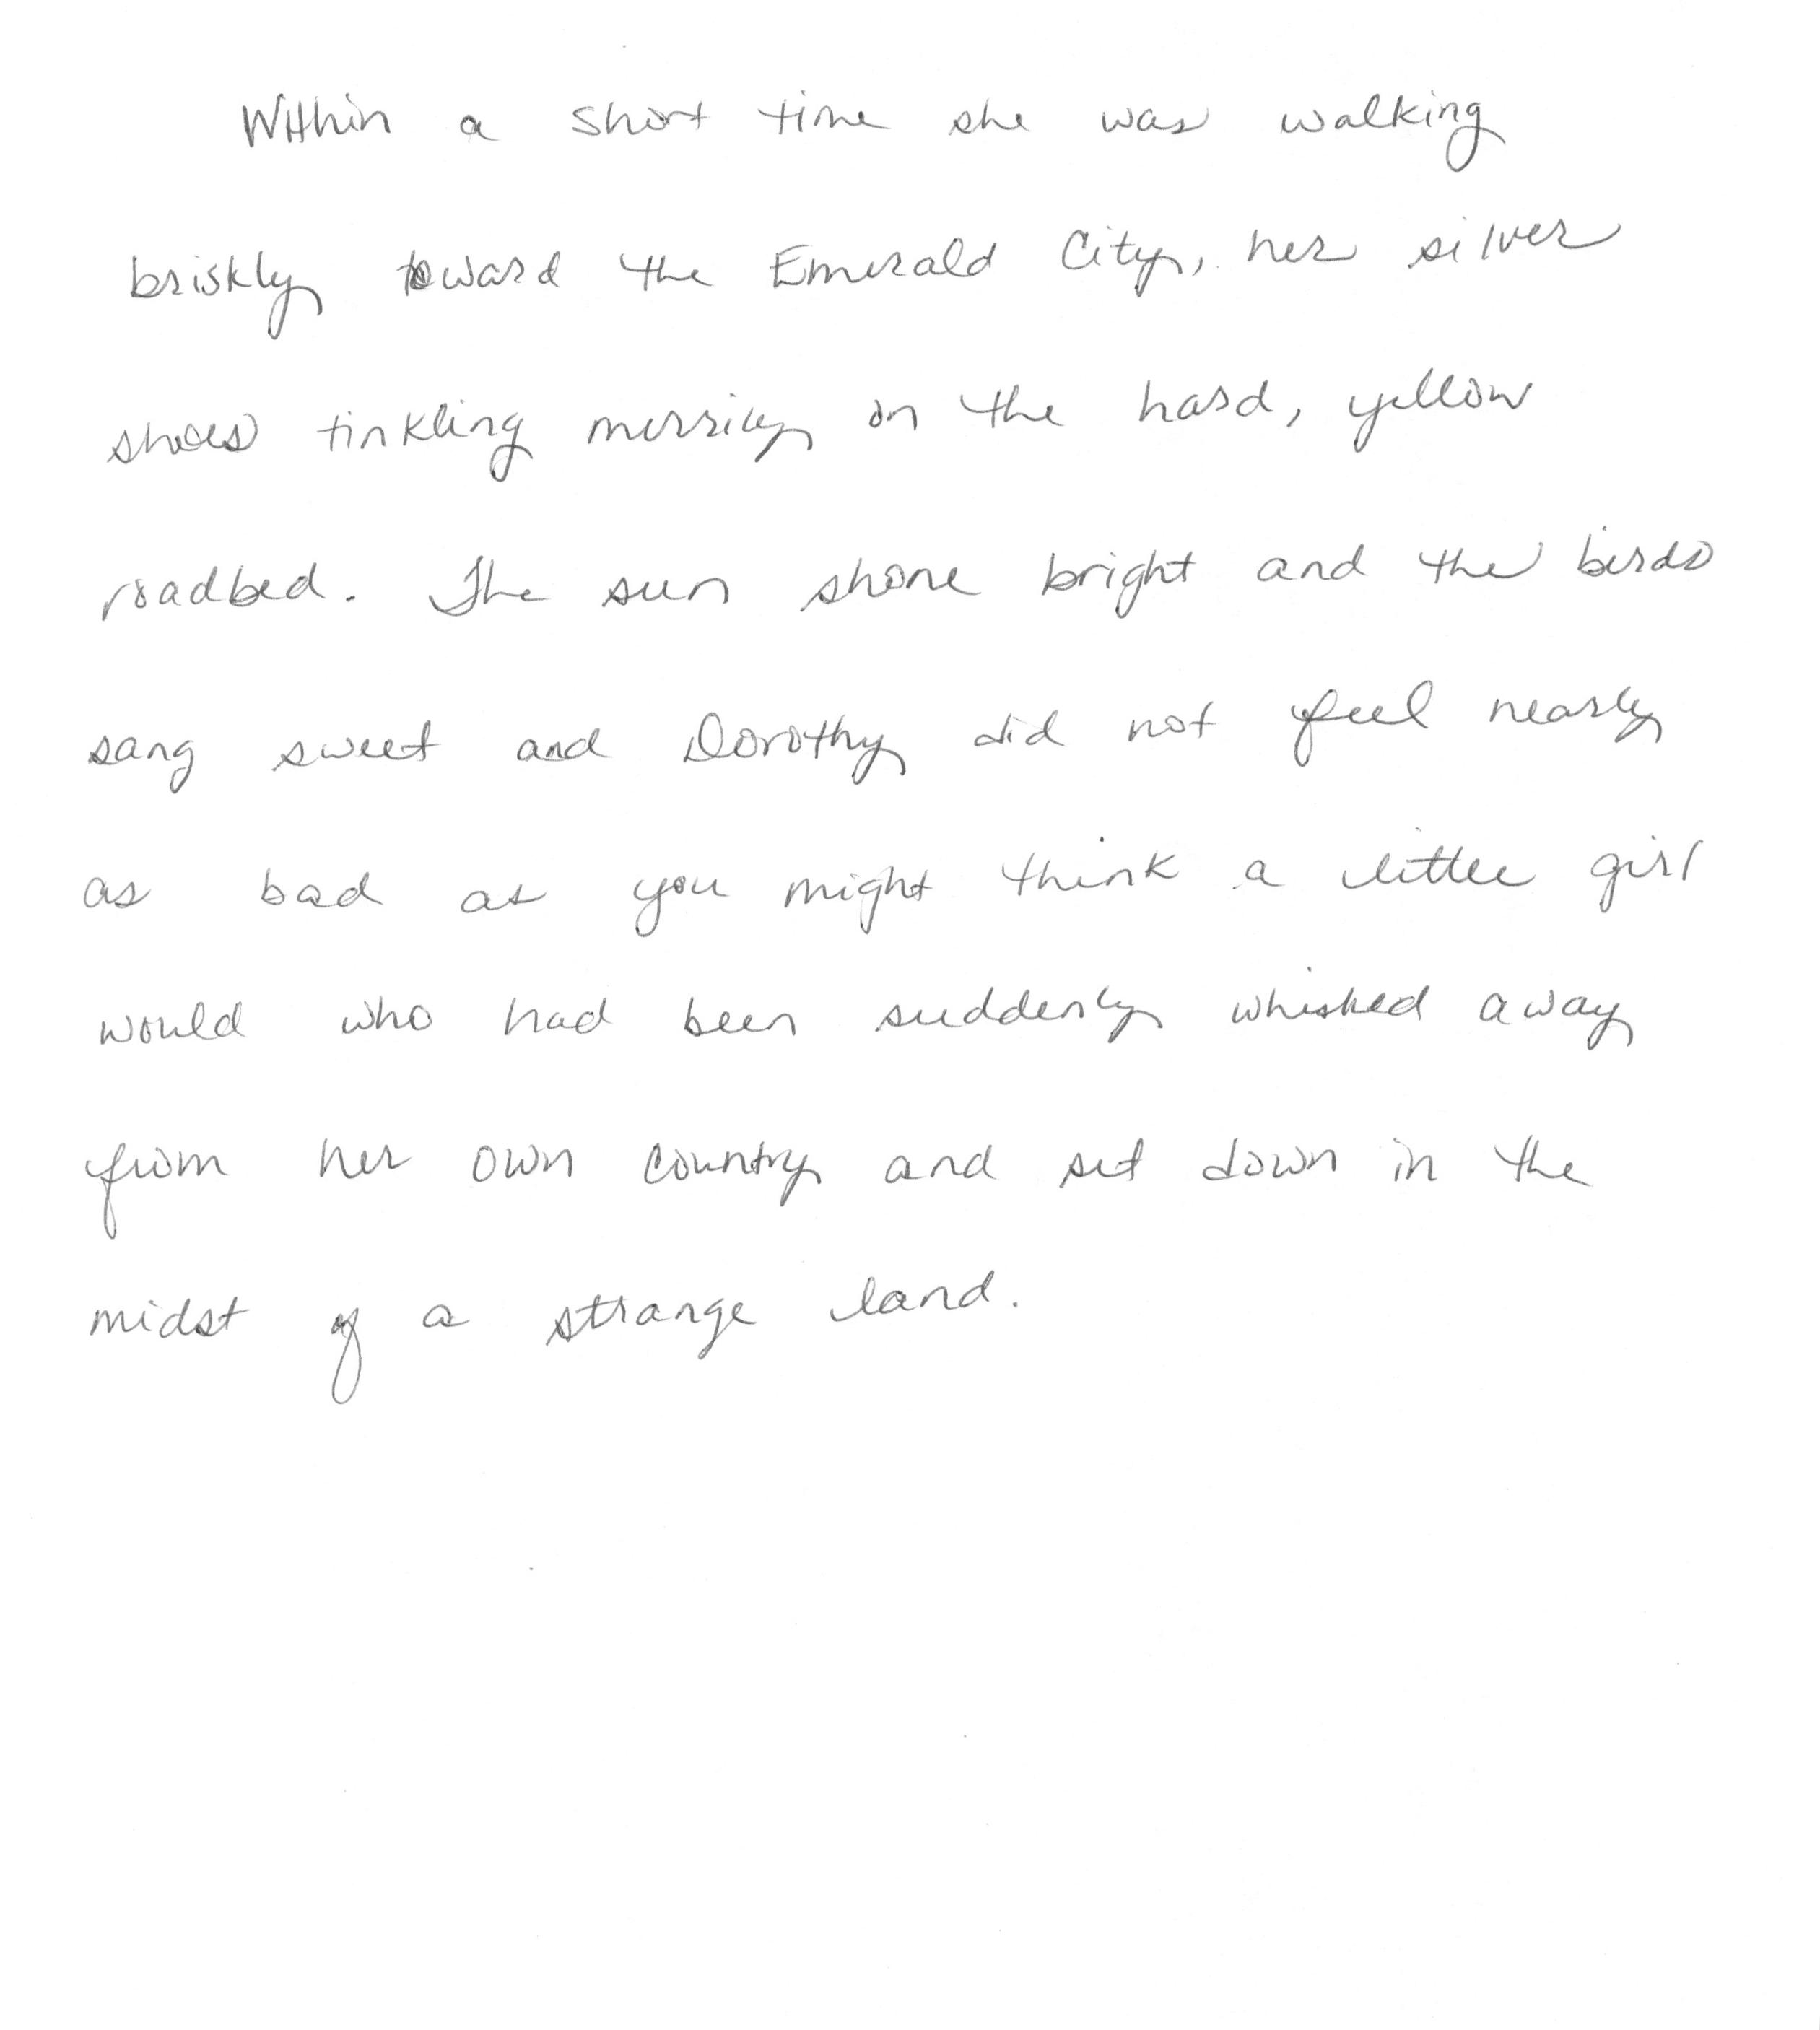 Within a short time she was walking
briskly toward the Emerald City, her silver
shoes tinkling merrily on the hard, yellow
roadbed. The sun shone bright and the birds
sang sweet and Dorothy did not feel nearly
as bad as you might think a little girl
would who had been suddenly whisked away
from her own country and set down in the
midst of a strange land.